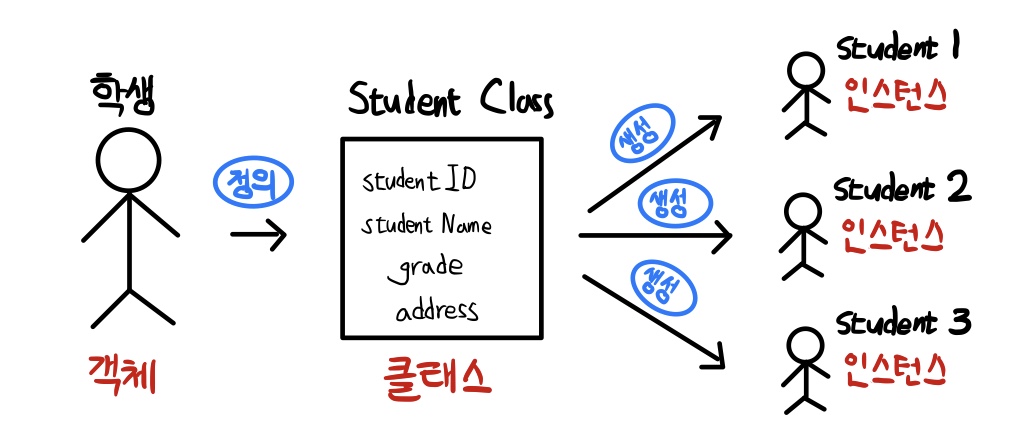 학생
객체
정의
Student Class
student ID
student Name
grade
address
클래스
생성
생성
생성
Student 1
인스턴스
Student 2
인스턴스
Student 3
인스턴스